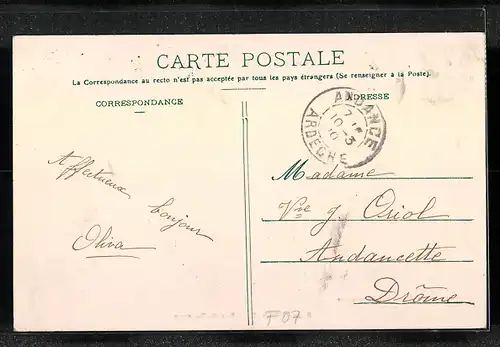 CARTE POSTALE
La Correspondance au recto n'est pas acceptée par tous les pays étrangers (Se renseigner à la Poste).
CORRESPONDANCE
ADRESSE
ANDANCE
ARDÈCHE
Affectueux
bonjour
Oliva
Madame
Vve J. Oriol
Andancette
Drôme
F07